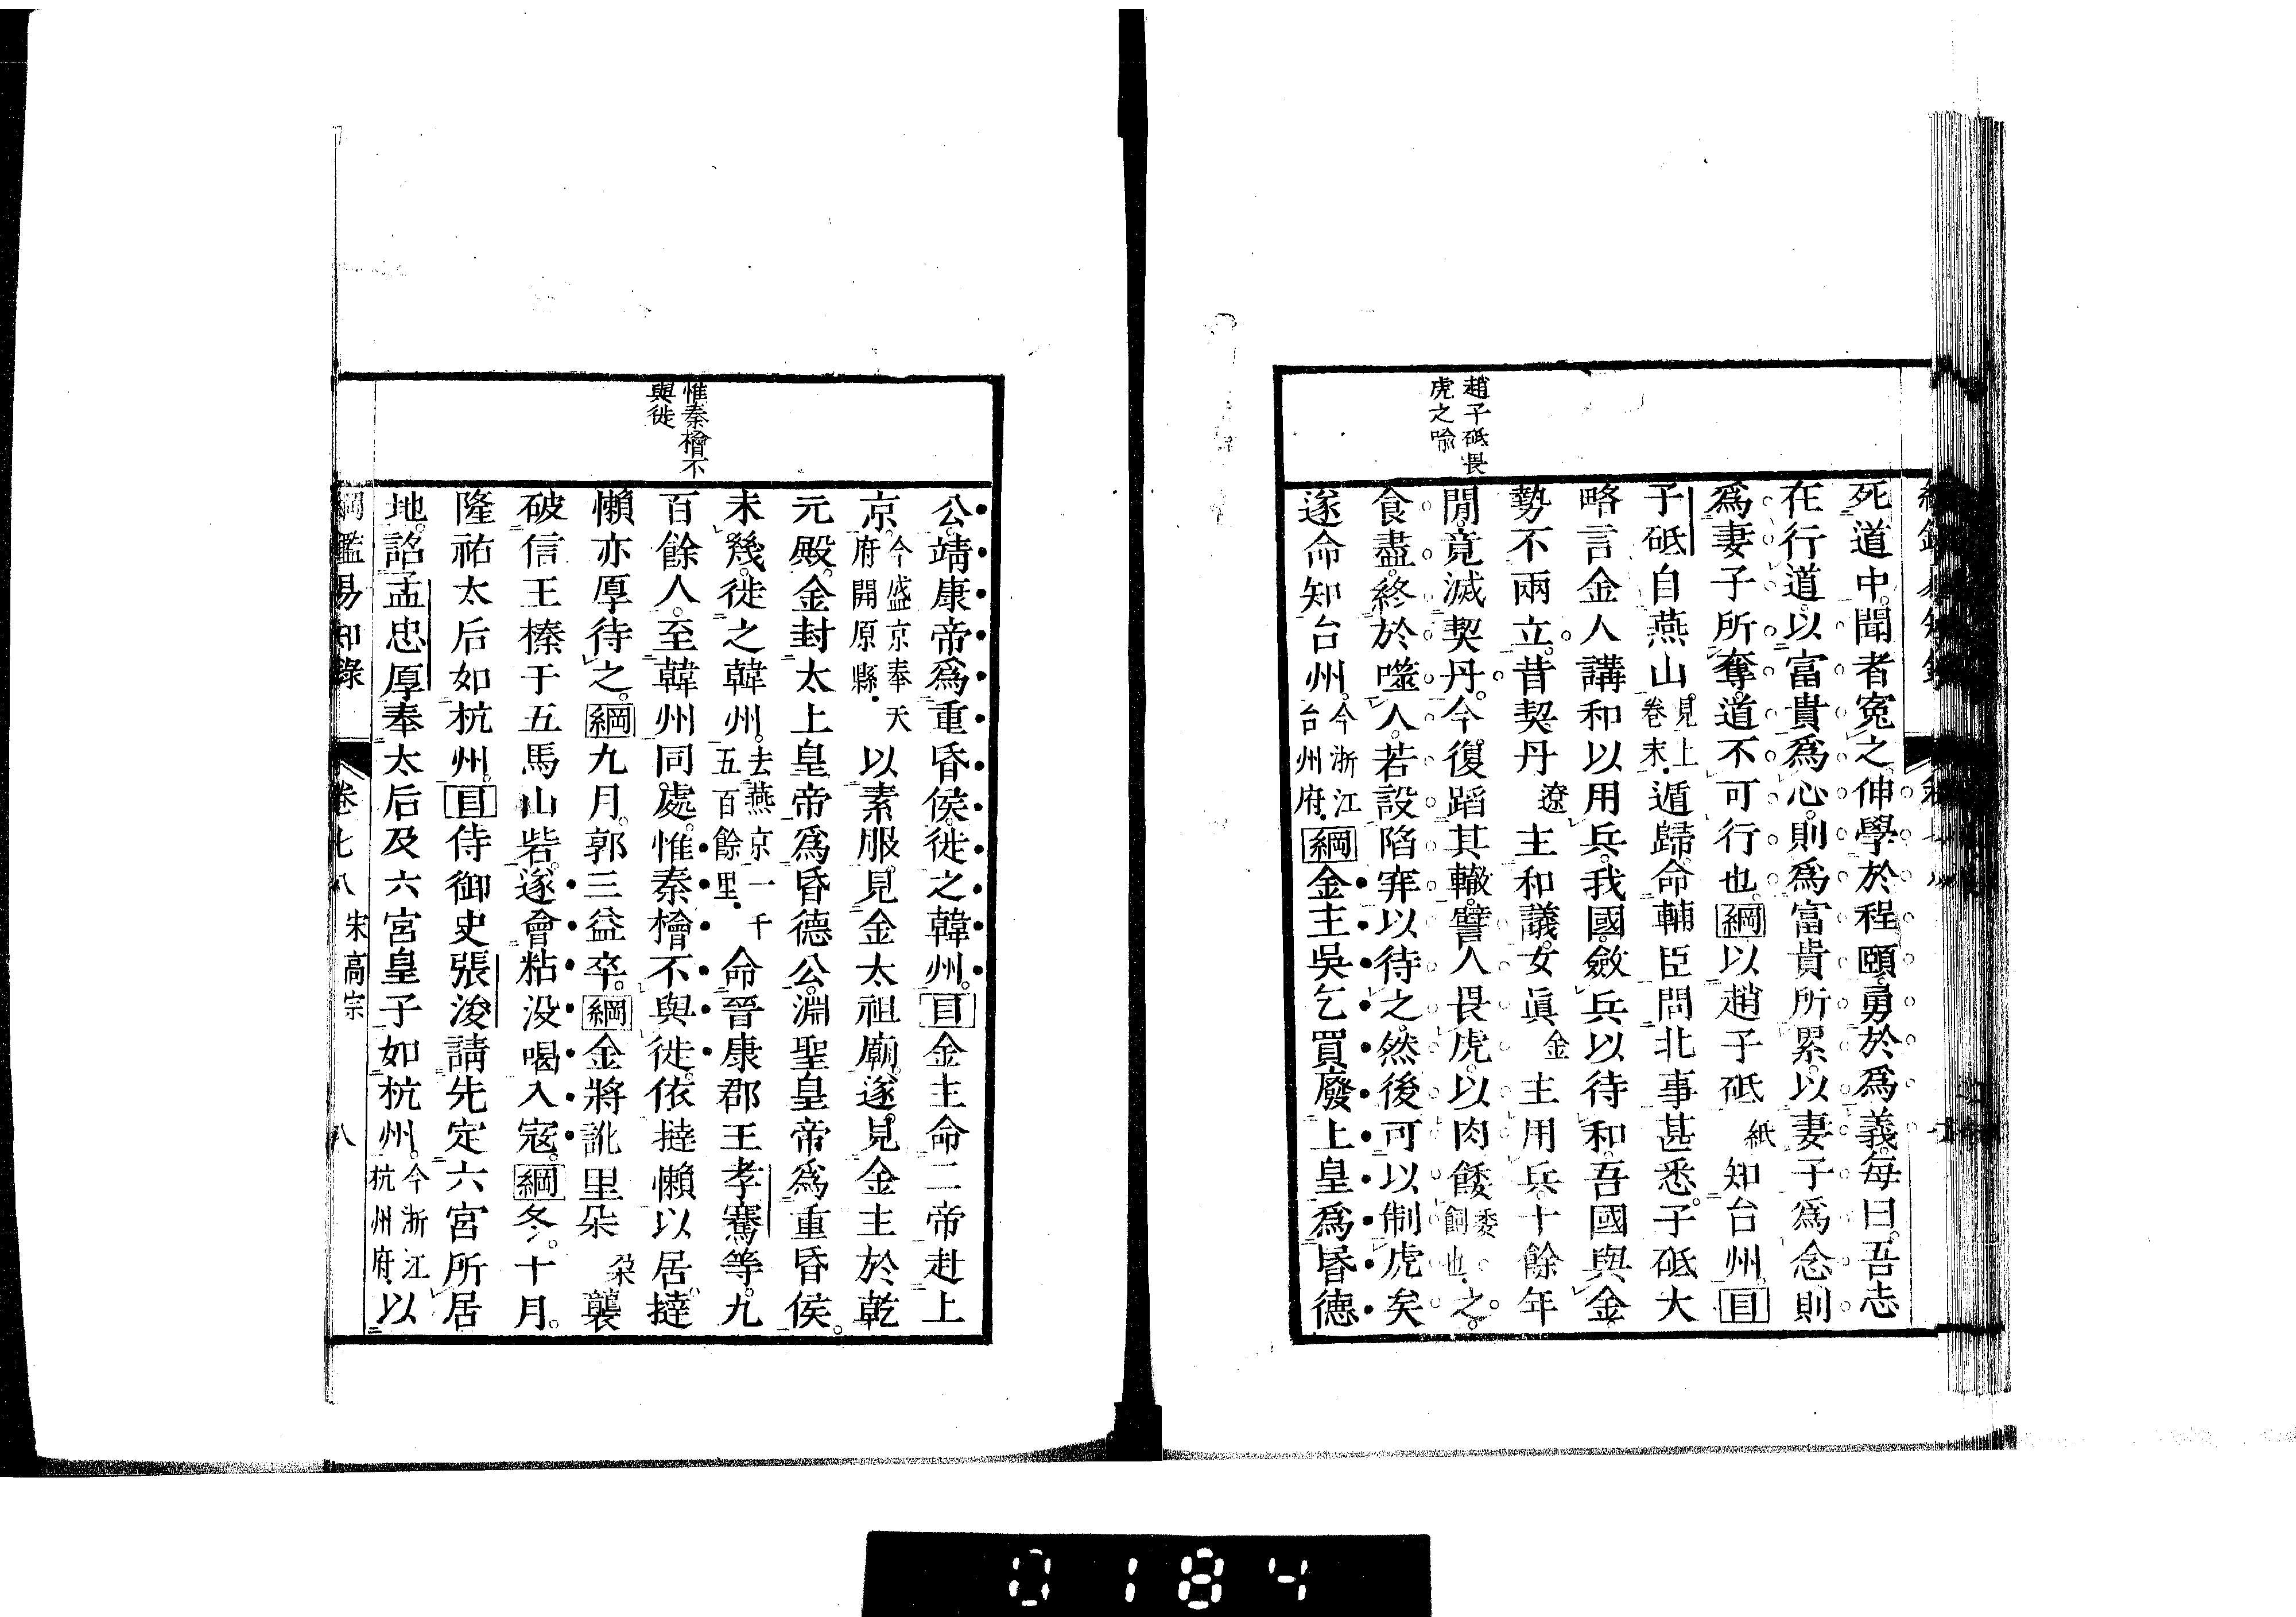 趙子砥畏
虎之喻
死道中。聞者寃之。伸學於程頤。勇於爲義。每曰。吾志
在行道。以富貴爲心。則爲富貴所累。以妻子爲念。則
爲妻子所奪。道不可行也。綱以趙子砥紙知台州。目
子砥自燕山。見上卷末.遁歸。命輔臣問北事甚悉。子砥大
略言金人講和以用兵。我國斂兵以待和。吾國與金
勢不兩立。昔契丹遼主和議。女眞金主用兵。十餘年
間。竟滅契丹。今復蹈其轍。譬人畏虎。以肉餧委飼也.之。
食盡。終於噬人。若設陷穽以待之。然後可以制虎矣
遂命知台州。今浙江台州府.綱金主吳乞買廢上皇爲昬德
惟秦檜不
與徙
公。靖康帝爲重昏侯。徙之韓州。目金主命二帝赴上
京。今盛京奉天府開原縣.以素服見金太祖廟。遂見金主於乾
元殿。金封太上皇帝爲昏德公。淵聖皇帝爲重昏侯。
未幾。徙之韓州。去燕京一千五百餘里.命晉康郡王孝騫等。九
百餘人。至韓州同處。惟秦檜不與徙。依撻懶以居。撻
懶亦厚待之。綱九月。郭三益卒。綱金將訛里朵朶襲
破信王榛于五馬山砦。遂會粘没喝入寇。綱冬。十月。
隆祐太后如杭州。目侍御史張浚請先定六宮所居
地。詔孟忠厚奉太后及六宮皇子如杭州。今浙江杭州府.以
綱鑑易知錄 卷七八 宋高宗 八
0184